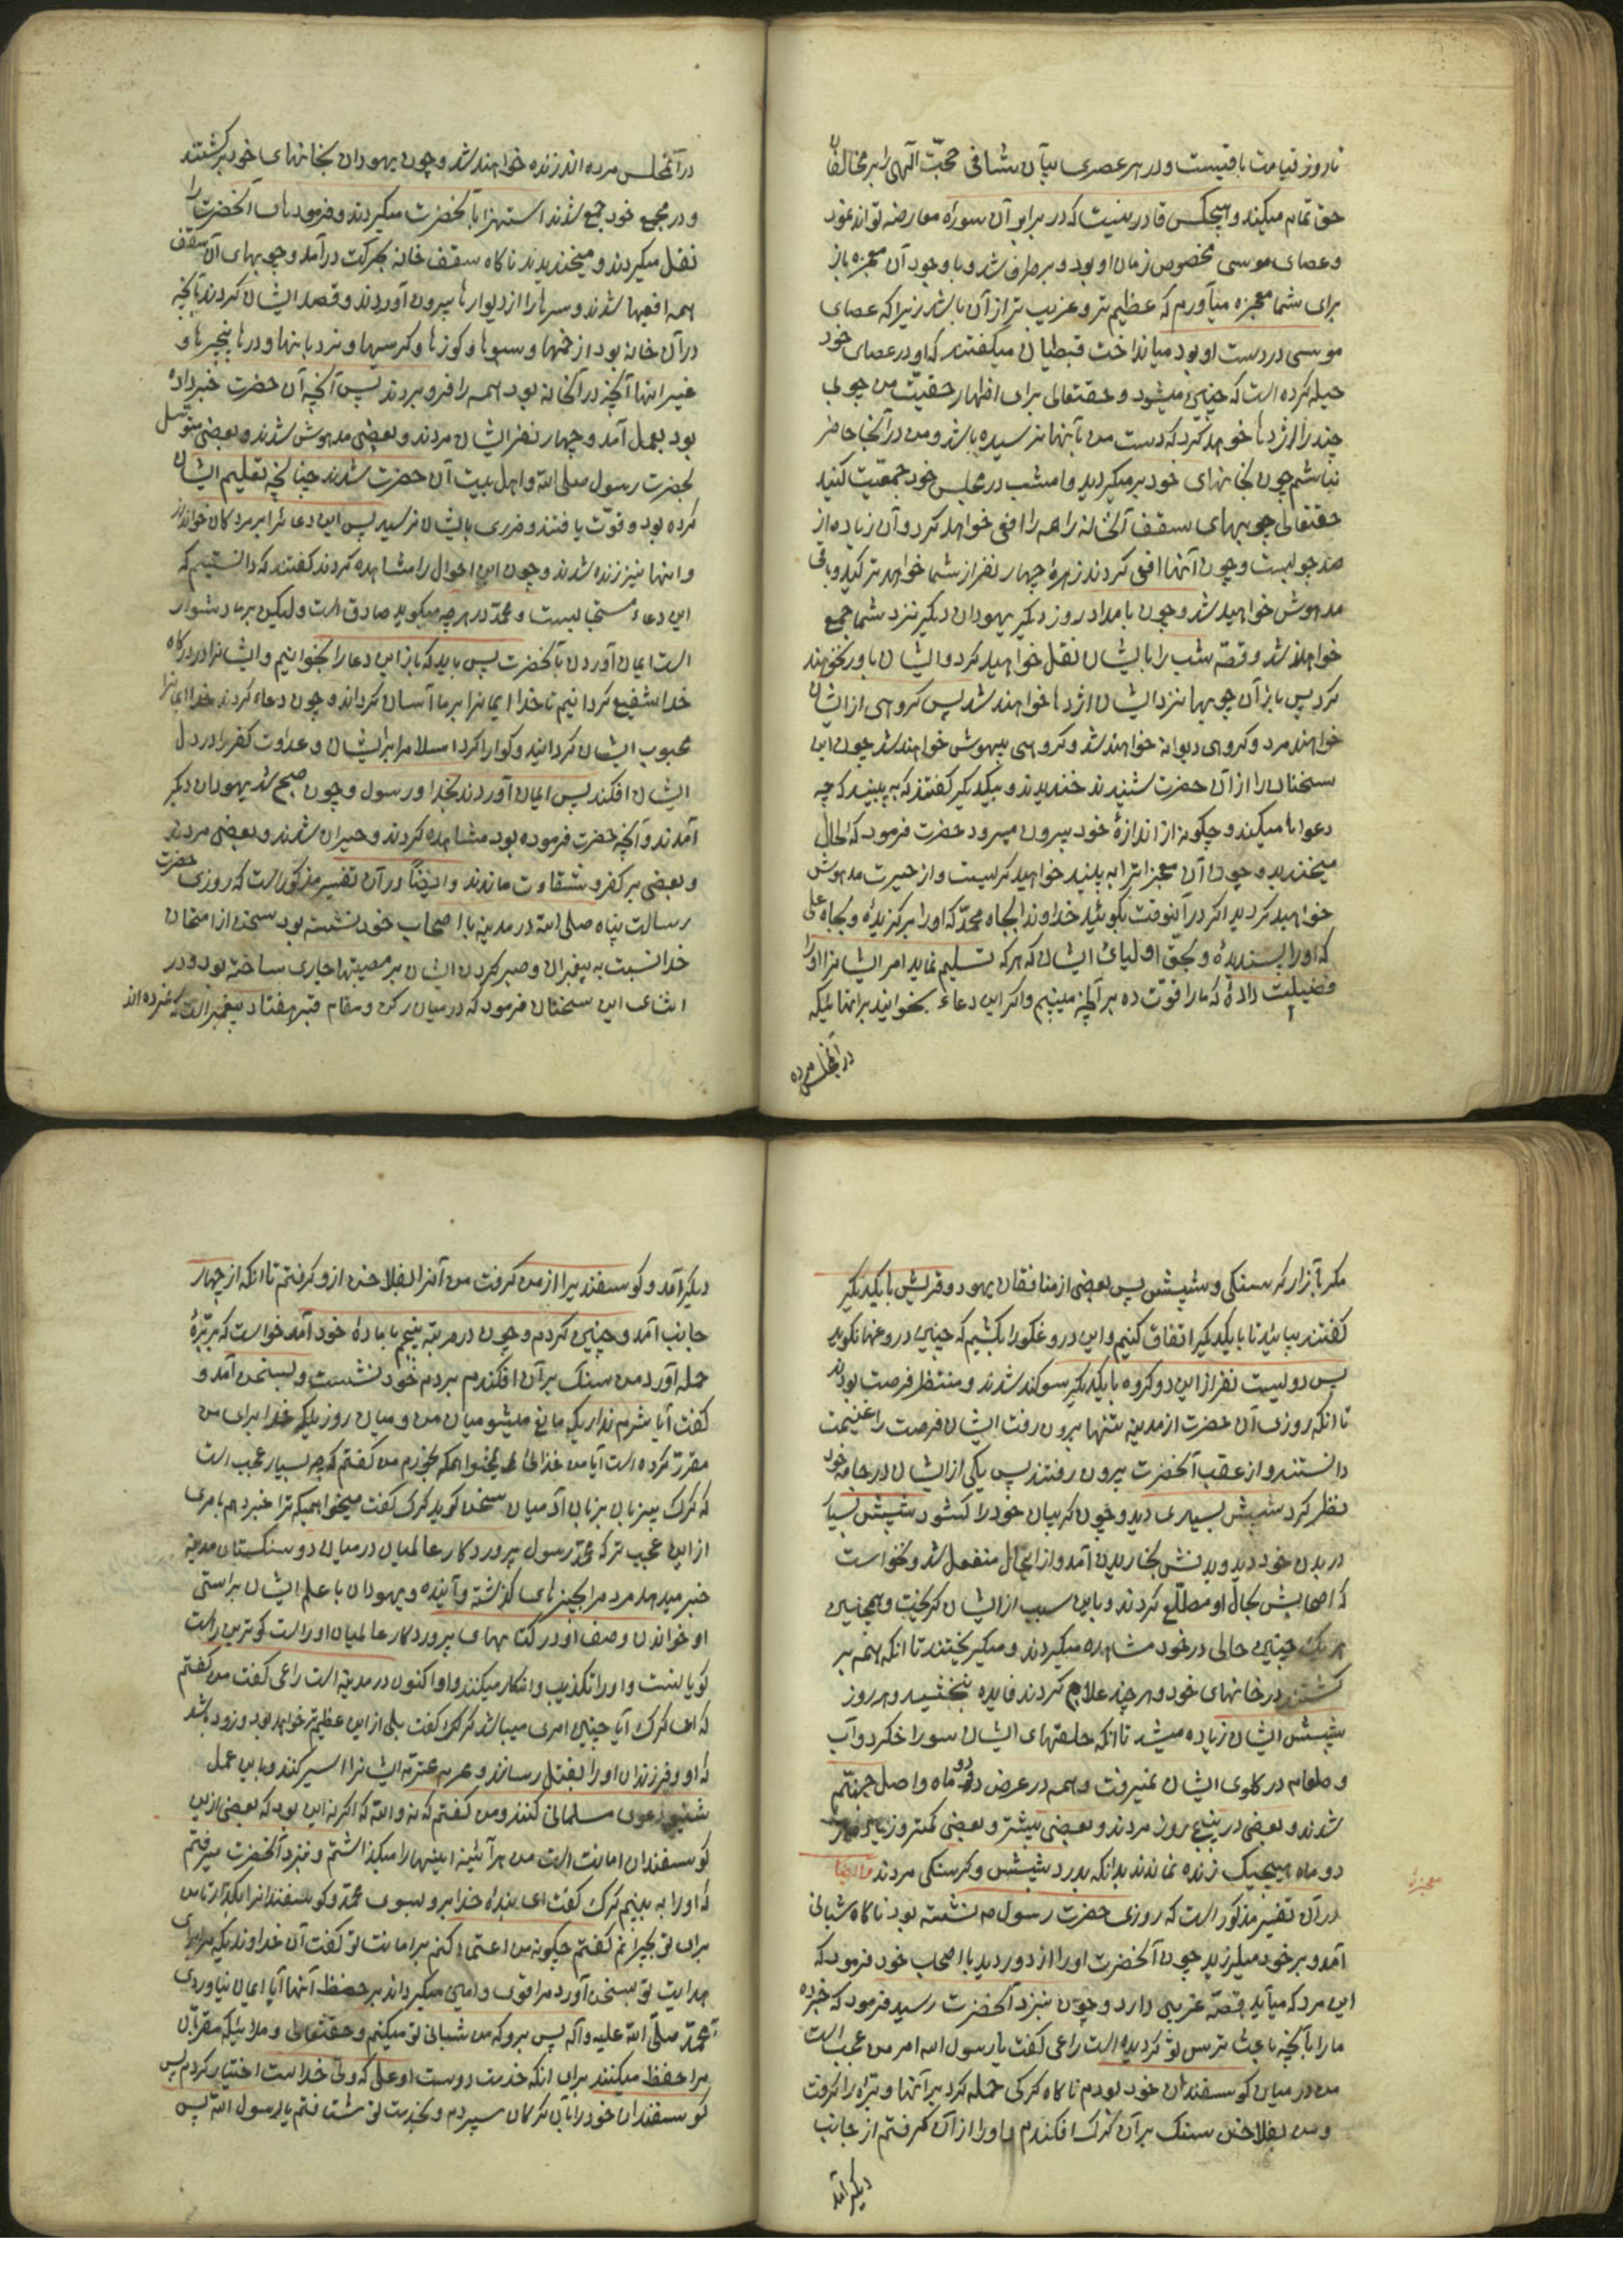 تا روز قیامت باقیست و در هر عصری بیان شافی حجّت الهی را بر مخالفان
حق تمام میکند و هیچکس قادر نیست که در برابر آن سوراه معارضه تواند نمود
و عصای موسی مخصوص زمان او بود و برطرف شد و با وجود آن معجزه باز
برای شما معجزه میآورم که عظیم تر و غریب تر از آن باشد زیرا که عصای
موسی در دست او بود میانداخت قبطیان میکفتند که او در عصای خود
حیله کرده است که چنین میشود و حقتعالی برای اظهار حقیّت من چوبی
چند را اژدها خواهد کرد که دست من بآنها نرسیده باشد و من در آنجا حاضر
نباشم چون بخانهای خود برمیکردید و امشب در مجلس خود جمعیّت کنید
حقتعالی چوبهای سقف آنخانه را همه را افعی خواهد کرد و آن زیاده از
صد چوبست و چون آنها افعی کردند زهرهٔ چهار نفر از شما خواهد ترکید و باقی
مدهوش خواهید شد و چون بامداد روز دیکر یهودان دیکر نزد شما جمع
خواهند شد و قصّه شب را بایشان نقل خواهید کرد و ایشان باور نخواهند
کرد پس باز آن چوبها نزد ایشان اژدها خواهند شد پس کروهی از ایشان
خواهند مرد و کروهی دیوانه خواهند شد و کروهی بیهوش خواهند شد چون این
سخنان را از آن حضرت شنیدند خندیدند و بیکدیکر کفتند که به بینید که چه
دعواها میکند و چکونه از اندازهٔ خود بیرون میرود حضرت فرمود که الحال
میخندید و چون آن معجزاترا به بینید خواهید کریست و از حیرت مدهوش
خواهید کردید اکر در آنوقت بکوئید خداوندا بجاه محمّد که او را برکزیدهٔ و بجاه علی
که او را پسندیدهٔ و بحقّ اولیای ایشان که هر که تسلیم نماید امر ایشانرا او را
فضیلت دادهٔ که ما را قوّت ده بر آنچه میبینیم و اکر این دعاء بخوانید بر انها ئیکه
در آنمجلس مرده
در آنمجلس مرده اند زنده خواهند شد و چون یهودان بخانهای خود برکشتند
و در مجمع خود جمع شدند استهزا بآنحضرت میکردند و فرموده های آنحضرت را
نقل میکردند و میخندیدند ناکاه سقف خانه بحرکت درآمد و چوبهای آن سقف
همه افعیها شدند و سرها را از دیوارها بیرون آوردند و قصد ایشان کردند با آنچه
در آن خانه بود از خمها و سبوها و کوزها و کرسیها و نردبانها و درها پنجرها و
غیر انها آنچه در آنخانه بود همه را فرو بردند پس آنچه آن حضرت خبر داده
بود بعمل آمد و چهار نفر ایشان مردند و بعضی مدهوش شدند و بعضی متوسّل
بحضرت رسول صلی الله و اهل بیت آن حضرت شدند چنانچه تعلیم ایشان
کرده بود و قوّت یافتند و ضرری بایشان نرسید پس این دعا را بر مردکان خواندند
و انها نیز زنده شدند و چون این احوال را مشاهده کردند کفتند که دانستیم که
این دعاء مستجابست و محمّد در هر چه میکوید صادق است ولیکن بر ما دشوار
است ایمان آوردن بآنحضرت پس باید که باز این دعا را بخوانیم و ایشانرا در درکاه
خدا شفیع کردانیم تا خدا ایمانرا بر ما آسان کرداند و چون دعاء کردند خدا ایمانرا
محبوب ایشان کردانید و کوارا کرد اسلام را بر ایشان و عداوت کفر را در دل
ایشان افکند پس ایمان آوردند بخدا و رسول و چون صبح شد یهودان دیکر
آمدند و آنچه حضرت فرموده بود مشاهده کردند و حیران شدند و بعضی مردند
و بعضی بر کفر و شقاوت ماندند وایضاً در آن تفسیر مذکور است که روزی حضرت
رسالت پناه صلی الله در مدینه با اصحاب خود نشسته بود سخن از امتحان
خدا نسبت به پیغبران و صبر کردن ایشان بر مصیبتها جاری ساخته بود و در
اثنای این سخنان فرمود که در میان رکن و مقام قبر هفتاد پیغمبر است که نمرده اند
مکر بآزار کرسنکی و شپش پس بعضی از منافقان یهود و قریش با یکدیکر
کفتند بیائید تا با یکدیکر اتفاق کنیم و این دروغکو را بکشیم که چنین دروغها نکوید
پس دویست نفر از این دو کروه با یکدیکر سوکند شدند و منتظر فرصت بودند
تا انکه روزی آن حضرت از مدینه تنها بیرون رفت ایشان فرصت را غنیمت
دانستند و از عقب آنحضرت بیرون رفتند پس یکی از ایشان در جامه خود
نظر کرد شپش بسیاری دید و چون کریبان خود را کشود شپش بسیار
در بدن خود دید و بدنش بخاریدن آمد و از اینحال منفعل شد و نخواست
که اصحابش بحال او مطلّع کردند و باین سبب از ایشان کریخت و همچنین
هر یک چنین حالی در خود مشاهده میکردند و میکریختند تا انکه همه بر
کشتند در خانهای خود و هر چند علاج کردند فایده نبخشید و هر روز
شپش ایشان زیاده میشد تا انکه حلقهای ایشان سوراخ کرد و آب
و طعام در کلوی ایشان نمیرفت و همه در عرض دو ماه واصل جهنّم
شدند و بعضی در پنج روز مردند و بعضی بیشتر و بعضی کمتر و زیاده از
دو ماه هیچیک زنده نماندند بدانکه بدرد شپش و کرسنکی مردند وایضا
معجزهٔ
در آن تفسیر مذکور است که روزی حضرت رسول ص نشسته بود ناکاه شبانی
آمد و بر خود میلرزید چون آنحضرت او را از دور دید با اصحاب خود فرمود که
این مرد که میآید قصّه غریبی دارد و چون نزد آنحضرت رسید فرمود که خبر ده
ما را بآنچه باعث ترس تو کردیده است راعی کفت یا رسول الله امر من عجب است
من در میان کوسفندان خود بودم ناکاه کرکی حمله کرد بر آنها و برّه را کرفت
و من بفلاخن سنک بر آن کرک افکندم و او را از آن کرفتم از جانب
دیکر آمد
دیکر آمد و کوسفند یرا از من کرفت من آنرا بفلاخن ازو کرفتم تا انکه از چهار
جانب آمد و چنین کردم و چون در مرتبه پنجم با مادهٔ خود آمد خواست که بر برّهٔ
حمله آورد من سنک بر آن افکندم بر دم خود نشست و بسخن آمد و
کفت آیا شرم نداری که مانع میشوی میان من و میان روزیکه خدا برای من
مقرّر کرده است آیا من غذائی نمیخواهم که بخورم من کفتم که چه بسیار عجب است
که کرک بیزبان بزبان آدمیان سخن کوید کرک کفت میخواهی که ترا خبر دهم بامری
از این عجب تر که محمّد رسول پروردکار عالمیان در میان دو سنکستان مدینه
خبر میدهد مردم را بچیزهای کذشته و آینده و یهودان با علم ایشان براستی
او خواندن وصف او در کتابهای پروردکار عالمیان او راست کوترین راست
کویانست و او را تکذیب و انکار میکنند و او اکنون در مدینه است راعی کفت من کفتم
که ای کرک آیا چنین امری میباشد کرک کفت بلی از این عظیمتر خواهد بود و زود باشد
که او و فرزندان او را بقتل رسانند و حرم عترت ایشانرا اسیر کنند و با این عمل
دعوی مسلمانی کنند و من کفتم که نه والله که اکر نه این بود که بعضی ازین
کوسفندان امانت است من هر آئینه اینها را میکذاشتم و نزد آنحضرت میرفتم
که او را به بینم کرک کفت ای بندهٔ خدا برو بسوی محمّد و کوسفندانرا بکذار تا من
برای تو بچرانم کفتم چکونه من اعتماد کنم بر امانت تو کفت آن خداوندیکه مرا برای
هدایت تو بسخن آورد مرا قوی و امین میکرداند بر حفظ آنها آیا ایمان نیاوردی
بمحمّد صلّی الله علیه وآله پس برو که من شبانی تو میکنم و حقتعالی و ملائیکه مقرّبان
مرا حفظ میکنند برای انکه خدمت دوست او علی که ولیّ خداست اختیار کردم پس
کوسفندان خود را بآن کرکان سپردم و بخدمت تو شتافتم یا رسول الله پس